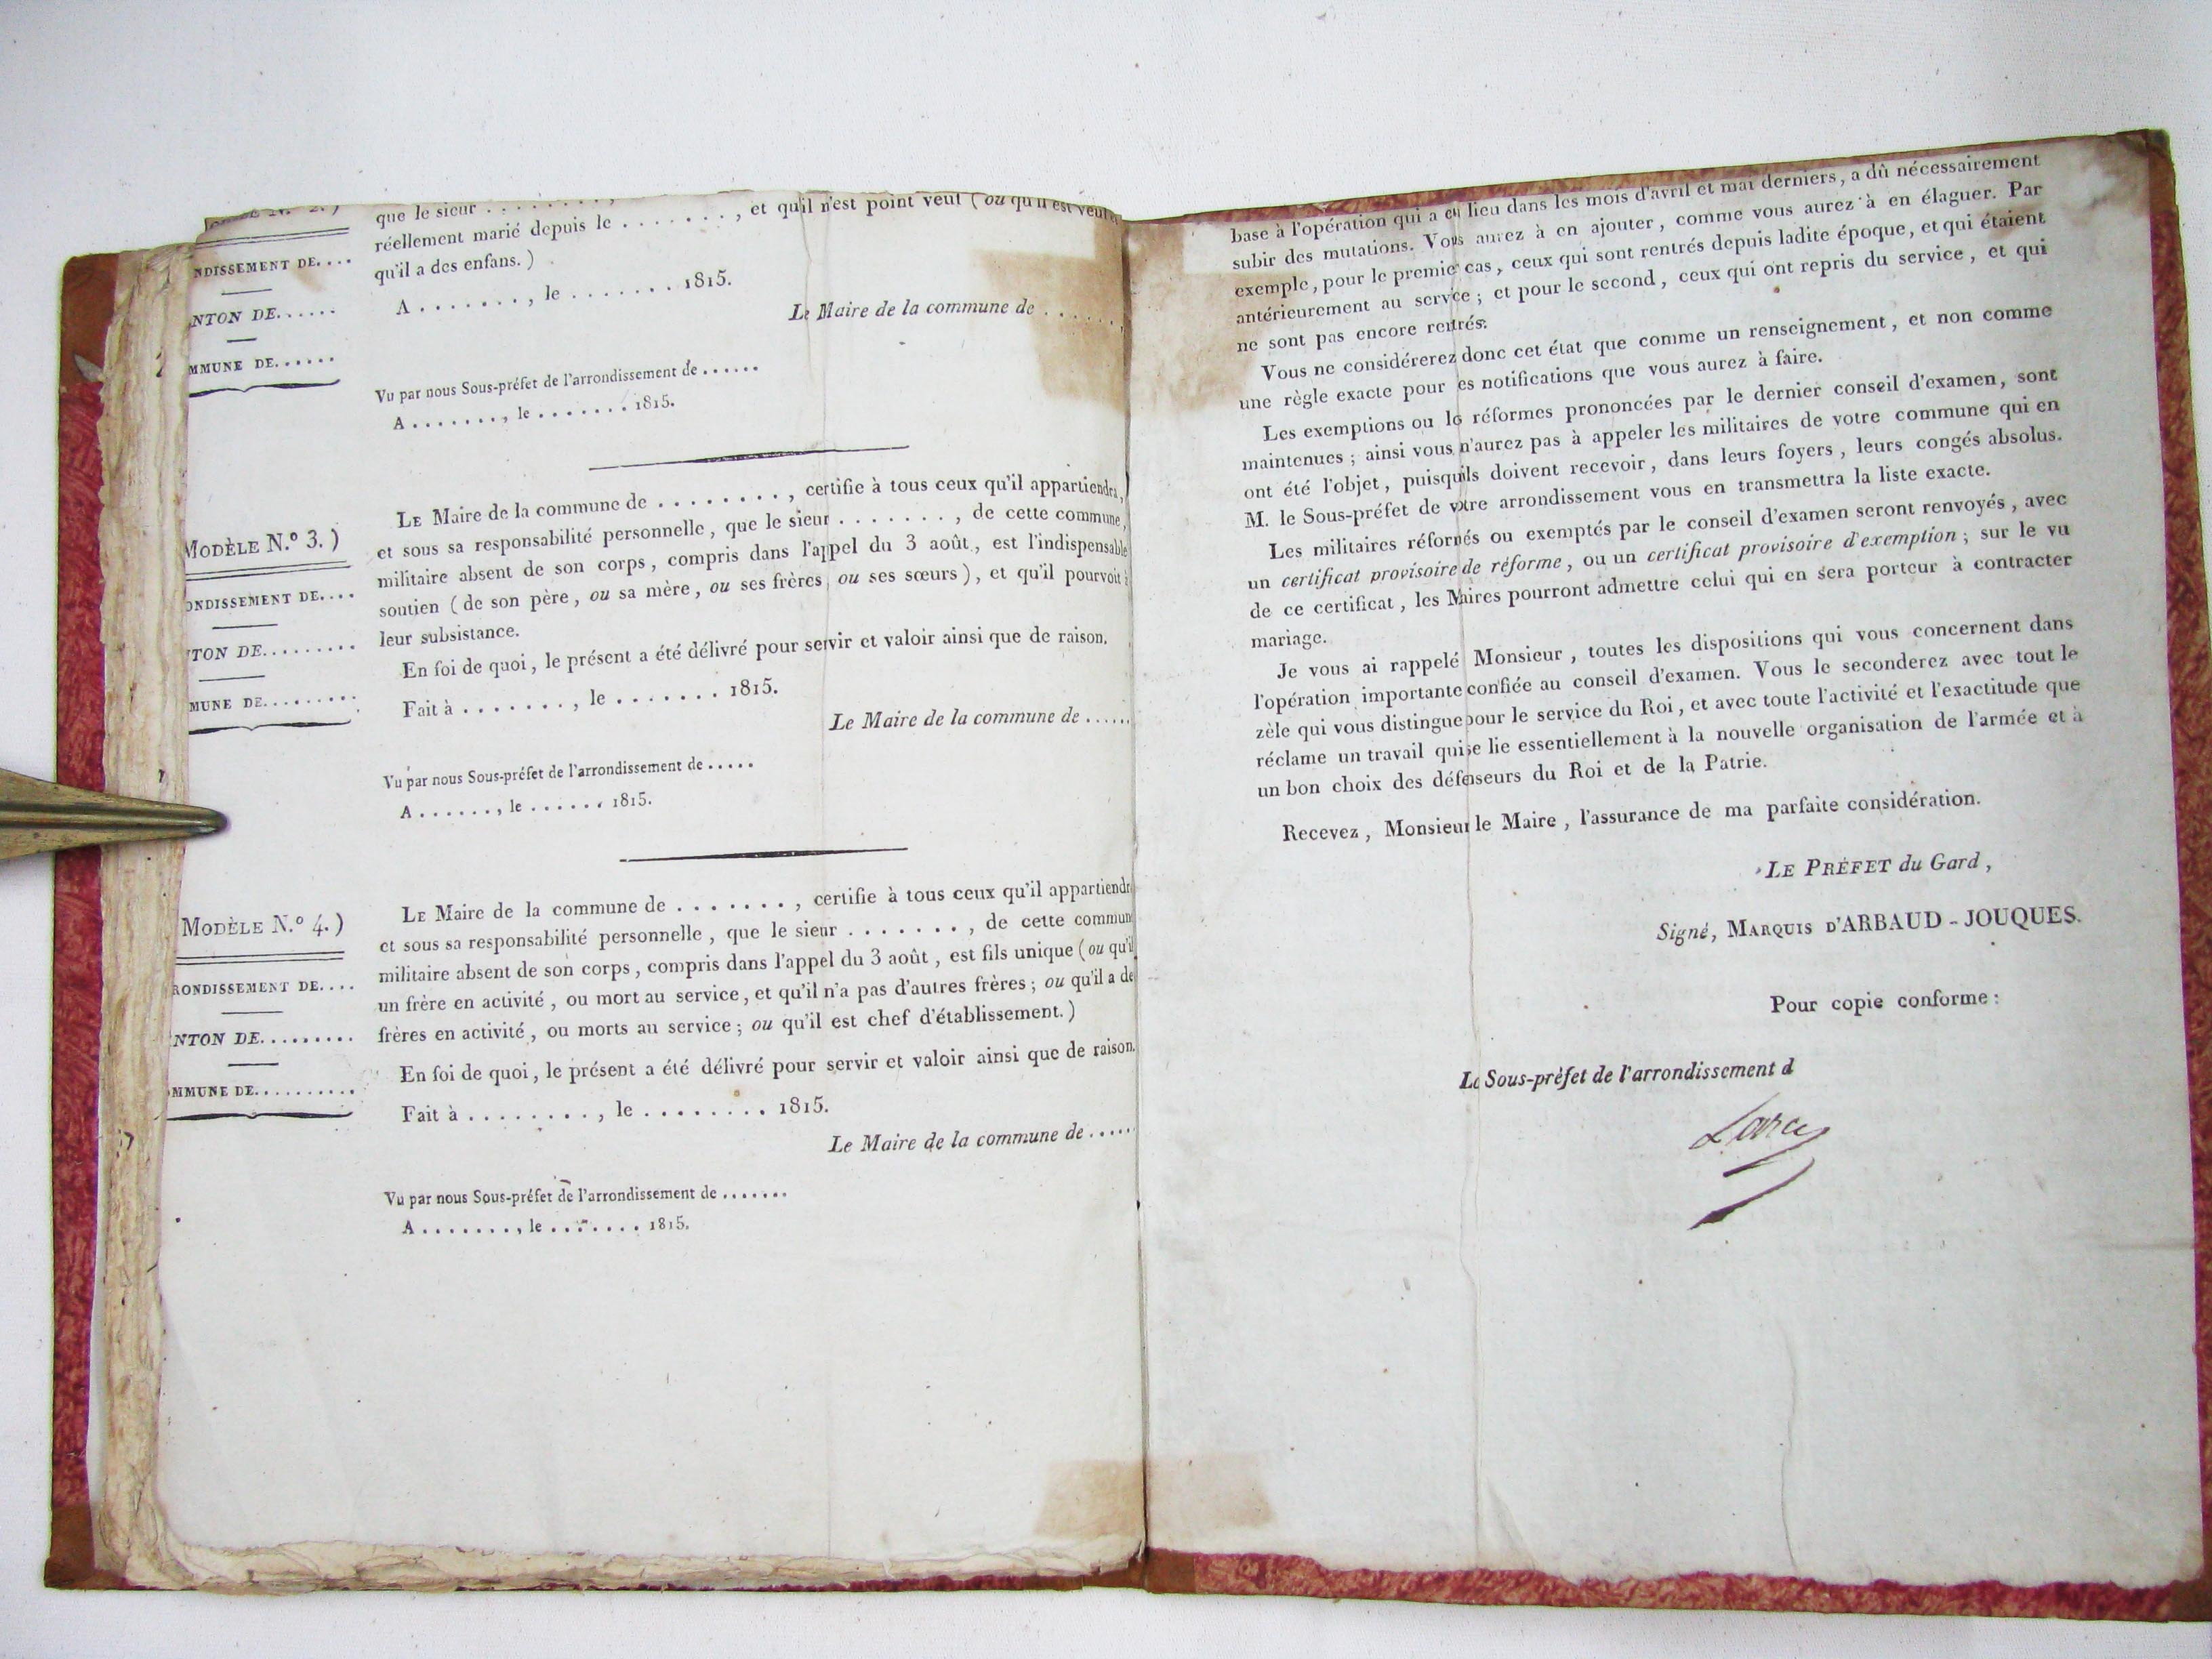 que le sieur . . . . . . . . ,
réellement marié depuis le . . . . . . . , et qu'il n'est point veuf (ou qu'il est veuf
qu'il a des enfans. )
NDISSEMENT DE. . . .
A . . . . . . . , le . . . . . . . 1815.
NTON DE. . . . . .
Le Maire de la commune de . . . . . . .
MMUNE DE. . . . . .
Vu par nous Sous-préfet de l'arrondissement de . . . . . .
A . . . . . . . , le . . . . . . . 1815.
MODÈLE N.º 3. )
ONDISSEMENT DE. . . .
TON DE. . . . . . . . .
MUNE DE. . . . . . . . .
LE Maire de la commune de . . . . . . . . , certifie à tous ceux qu'il appartiendra,
et sous sa responsabilité personnelle, que le sieur . . . . . . . , de cette commune,
militaire absent de son corps, compris dans l'appel du 3 août, est l'indispensable
soutien (de son père, ou sa mère, ou ses frères, ou ses sœurs), et qu'il pourvoit à
leur subsistance.
En foi de quoi, le présent a été délivré pour servir et valoir ainsi que de raison.
Fait à . . . . . . . , le . . . . . . . 1815.
Le Maire de la commune de . . . . . .
Vu par nous Sous-préfet de l'arrondissement de . . . . .
A . . . . . . , le . . . . . . 1815.
MODÈLE N.º 4. )
RONDISSEMENT DE. . . .
NTON DE. . . . . . . . .
OMMUNE DE. . . . . . . . . .
LE Maire de la commune de . . . . . . . , certifie à tous ceux qu'il appartiendr
et sous sa responsabilité personnelle, que le sieur . . . . . . . , de cette commun
militaire absent de son corps, compris dans l'appel du 3 août, est fils unique (ou qu'il
un frère en activité, ou mort au service, et qu'il n'a pas d'autres frères; ou qu'il a de
frères en activité, ou morts au service; ou qu'il est chef d'établissement.)
En foi de quoi, le présent a été délivré pour servir et valoir ainsi que de raison.
Fait à . . . . . . . . , le . . . . . . . . 1815.
Le Maire de la commune de . . . . .
Vu par nous Sous-préfet de l'arrondissement de . . . . . . .
A . . . . . . . , le . . . . . . . 1815.
base à l'opération qui a eu lieu dans les mois d'avril et mai derniers, a dû nécessairement
subir des mutations. Vous aurez à en ajouter, comme vous aurez à en élaguer. Par
exemple, pour le premier cas, ceux qui sont rentrés depuis ladite époque, et qui étaient
antérieurement au service; et pour le second, ceux qui ont repris du service, et qui
ne sont pas encore rentrés.
Vous ne considérerez donc cet état que comme un renseignement, et non comme
une règle exacte pour es notifications que vous aurez à faire.
Les exemptions ou le réformes prononcées par le dernier conseil d'examen, sont
maintenues; ainsi vous n'aurez pas à appeler les militaires de votre commune qui en
ont été l'objet, puisqu'ils doivent recevoir, dans leurs foyers, leurs congés absolus.
M. le Sous-préfet de votre arrondissement vous en transmettra la liste exacte.
Les militaires réformés ou exemptés par le conseil d'examen seront renvoyés, avec
un certificat provisoire de réforme, ou un certificat provisoire d'exemption; sur le vu
de ce certificat, les Maires pourront admettre celui qui en sera porteur à contracter
mariage.
Je vous ai rappelé Monsieur, toutes les dispositions qui vous concernent dans
l'opération importante confiée au conseil d'examen. Vous le seconderez avec tout le
zèle qui vous distingue pour le service du Roi, et avec toute l'activité et l'exactitude que
réclame un travail qui se lie essentiellement à la nouvelle organisation de l'armée et à
un bon choix des défenseurs du Roi et de la Patrie.
Recevez, Monsieur le Maire, l'assurance de ma parfaite considération.
LE PRÉFET du Gard,
Signé, MARQUIS D'ARBAUD-JOUQUES.
Pour copie conforme :
Le Sous-préfet de l'arrondissement d
Larcy